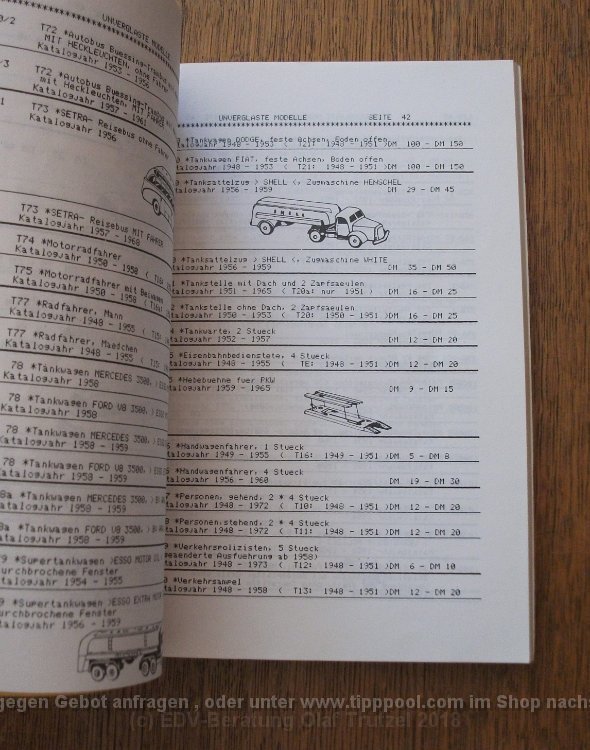 0/2
UNVERGLASTE MODELLE
T72 *Autobus Buessing-Trambus
MIT HECKLEUCHTEN, ohne Fahrer
Katalogjahr 1953 - 1956
/3
T72 *Autobus Buessing-Trambus
mit Heckleuchten, MIT FAHRER
Katalogjahr 1957 - 1961
1
T73 *SETRA- Reisebus ohne Fahrer
Katalogjahr 1956
T73 *SETRA- Reisebus MIT FAHRER
Katalogjahr 1957 - 1968
T74 *Motorradfahrer
Katalogjahr 1950 - 1958 (
T75 *Motorradfahrer mit Beiwagen
Katalogjahr 1950 - 1958 (
T77 *Radfahrer, Mann
Katalogjahr 1948 - 1955 (
T77 *Radfahrer, Maedchen
Katalogjahr 1948 - 1955 (
78 *Tankwagen MERCEDES 3500,
Katalogjahr 1958
78 *Tankwagen FORD V8 3500,
Katalogjahr 1958
78 *Tankwagen MERCEDES 3500, )
Katalogjahr 1958 - 1959
78 *Tankwagen FORD V8 3500, ) ESSO
Katalogjahr 1958 - 1959
8a *Tankwagen MERCEDES 3500, )
atalogjahr 1958 - 1959
8a *Tankwagen FORD V8 3500, )
atalogjahr 1958 - 1959
9 *Supertankwagen )ESSO MOTOR OIL
urchbrochene Fenster
atalogjahr 1954 - 1955
9 *Supertankwagen )ESSO EXTRA MOTOR
urchbrochene Fenster
atalogjahr 1956 - 1959
UNVERGLASTE MODELLE SEITE 42
*Tankwagen DODGE, feste Achsen, Boden offen
atalogjahr 1948 - 1953 ( T21: 1948 - 1951 )DM 100 - DM 150
0 *Tankwagen FIAT, feste Achsen, Boden offen
atalogjahr 1948 - 1953 ( T21: 1948 - 1951 )DM 100 - DM 150
0 *Tanksattelzug > SHELL <, Zugmaschine HENSCHEL
atalogjahr 1956 - 1959 DM 29 - DM 45
SHELL
0 *Tanksattelzug > SHELL <, Zugmaschine WHITE
atalogjahr 1956 - 1959 DM 35 - DM 50
1 *Tankstelle mit Dach und 2 Zapfsaeulen
atalogjahr 1951 - 1965 ( T20a: nur 1951 ) DM 16 - DM 25
*Tankstelle ohne Dach, 2 Zapfsaeulen
atalogjahr 1950 - 1953 ( T20: 1950 - 1951 )DM 16 - DM 25
4 *Tankwarte, 2 Stueck
atalogjahr 1952 - 1957 DM 12 - DM 20
5 *Eisenbahnbedienstete, 4 Stueck
atalogjahr 1948 - 1955 ( TE: 1948 - 1951 )DM 12 - DM 20
5 *Hebebuehne fuer PKW
atalogjahr 1959 - 1965 DM 9 - DM 15
6 *Handwagenfahrer, 1 Stueck
atalogjahr 1949 - 1955 ( T16: 1949 - 1951 )DM 5 - DM 8
*Handwagenfahrer, 4 Stueck
atalogjahr 1956 - 1960 DM 19 - DM 30
7 *Personen, gehend, 2 * 4 Stueck
atalogjahr 1948 - 1972 ( T10: 1948 - 1951 )DM 12 - DM 20
8 *Personen,stehend, 2 * 4 Stueck
atalogjahr 1948 - 1972 ( T11: 1948 - 1951 )DM 12 - DM 20
9 *Verkehrspolizisten, 5 Stueck
geaenderte Ausfuehrung ab 1958)
atalogjahr 1948 - 1973 ( T12: 1948 - 1951 )DM 6 - DM 10
0 *Verkehrsampel
atalogjahr 1948 - 1958 ( T13: 1948 - 1951 )DM 12 - DM 20
gegen Gebot anfragen , oder unter www.tipppool.com im Shop nachs
(c) EDV-Beratung Olaf Trutzel 2018